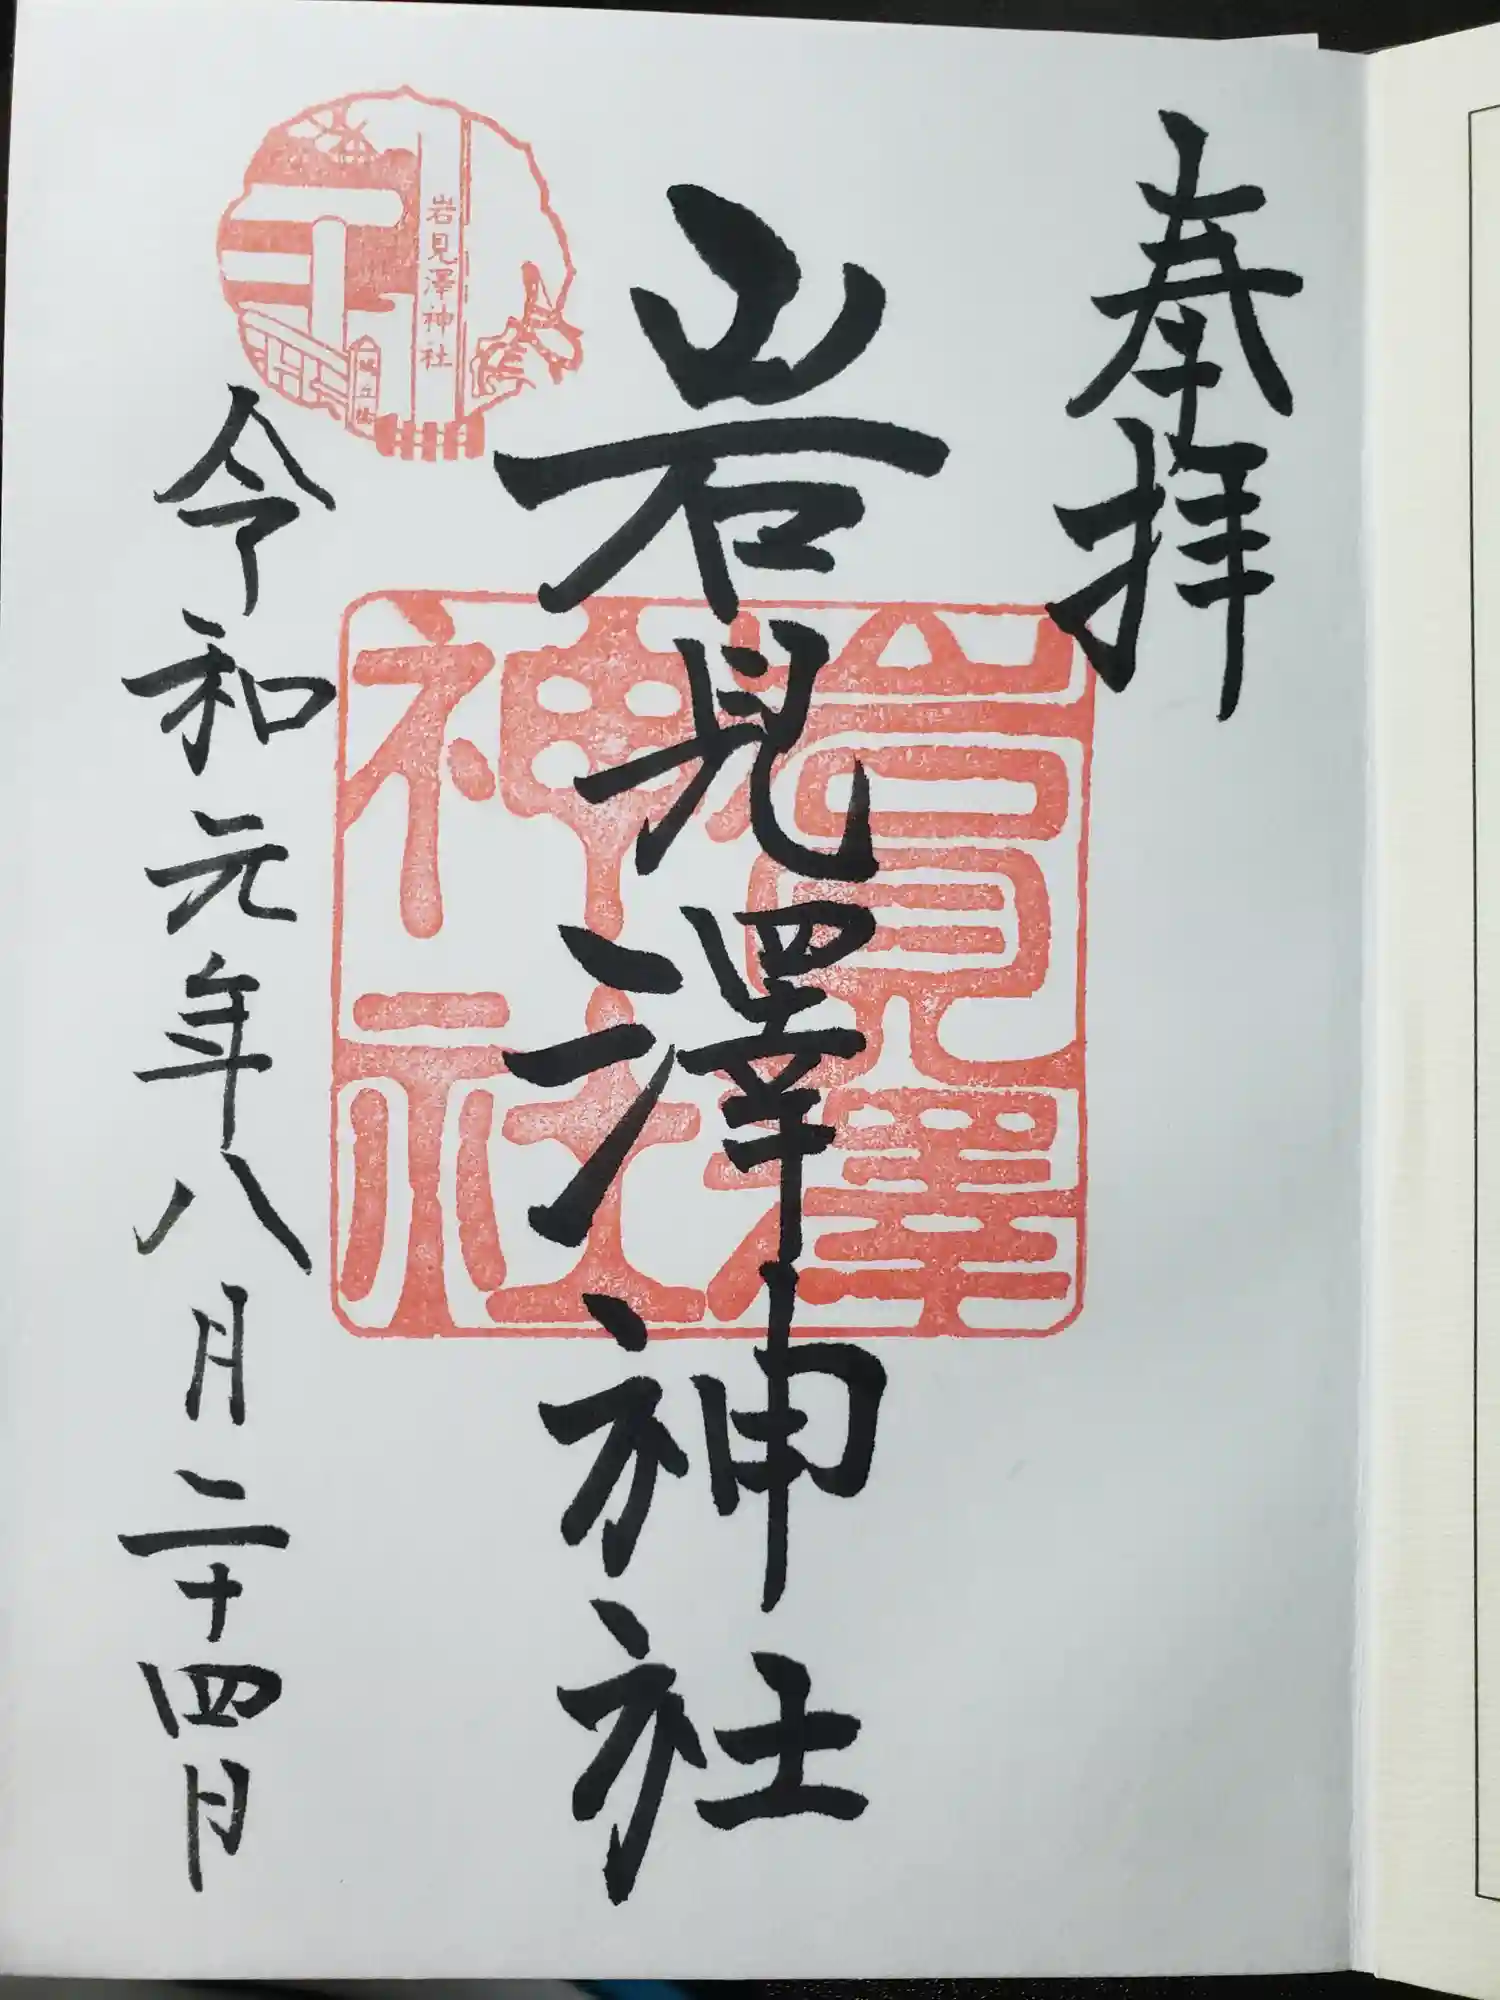 奉拝
岩見澤神社
岩見澤神社
岩見澤神社
令和元年八月二十四日